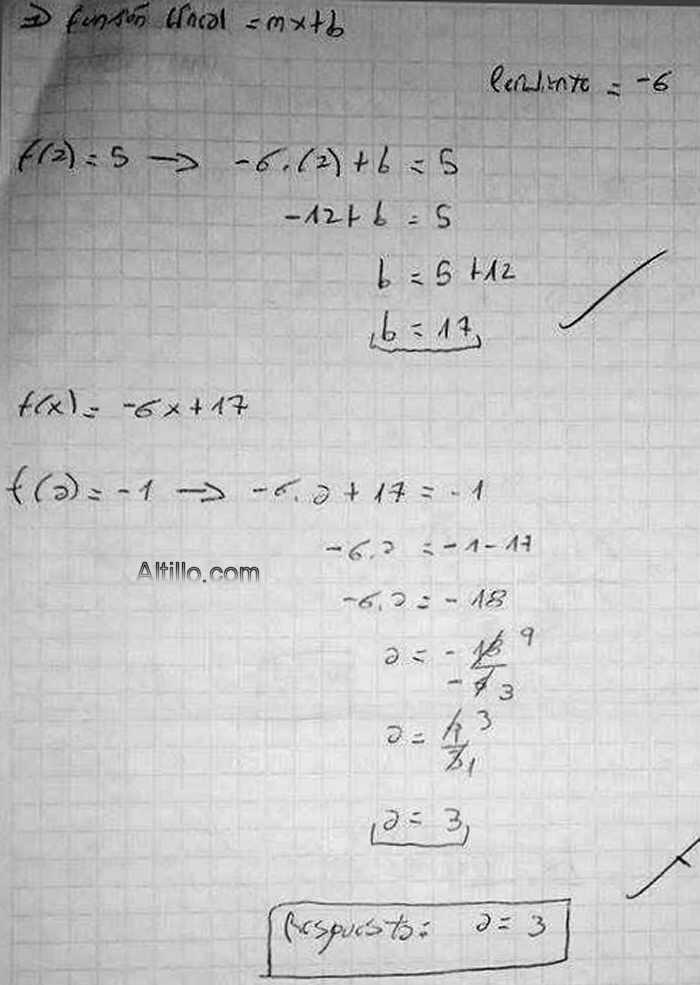 ⇒ Función lineal = mx+b
Pendiente = -6
f(2) = 5 → -6.(2)+b = 5
-12+b = 5
b = 5+12
b = 17
f(x) = -6x+17
f(a) = -1 → -6.a+17 = -1
-6.a = -1-17
Altillo.com
-6.a = -18
a = -18 9
-6 3
a = 9 3
3 1
a = 3
Respuesta: a = 3